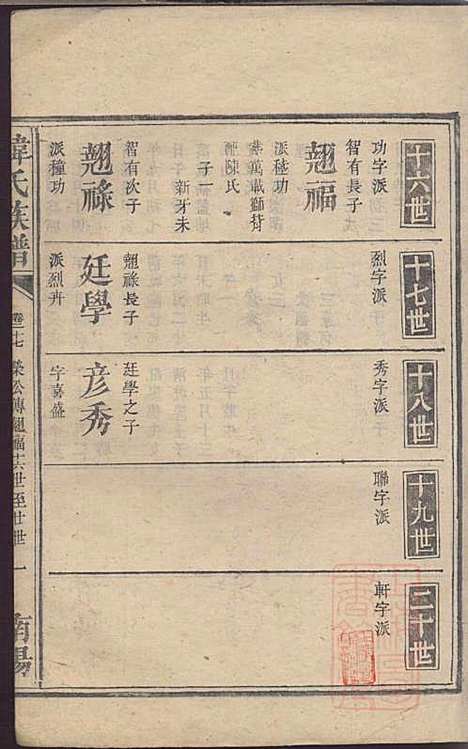 十六世
功字派
智有長子
翹福
派種功
葬萬載獅
配陳氏
子一
新牙未
智有次子
翹祿
派種功
十七世
烈字派
翹祿長子
廷學
派烈卉
十八世
秀字派
廷學之子
彦秀
字嘉盛
十九世
聯字派
二十世
軒字派
氏族譜
卷七
傳翹福十六世至廿世
一
南陽